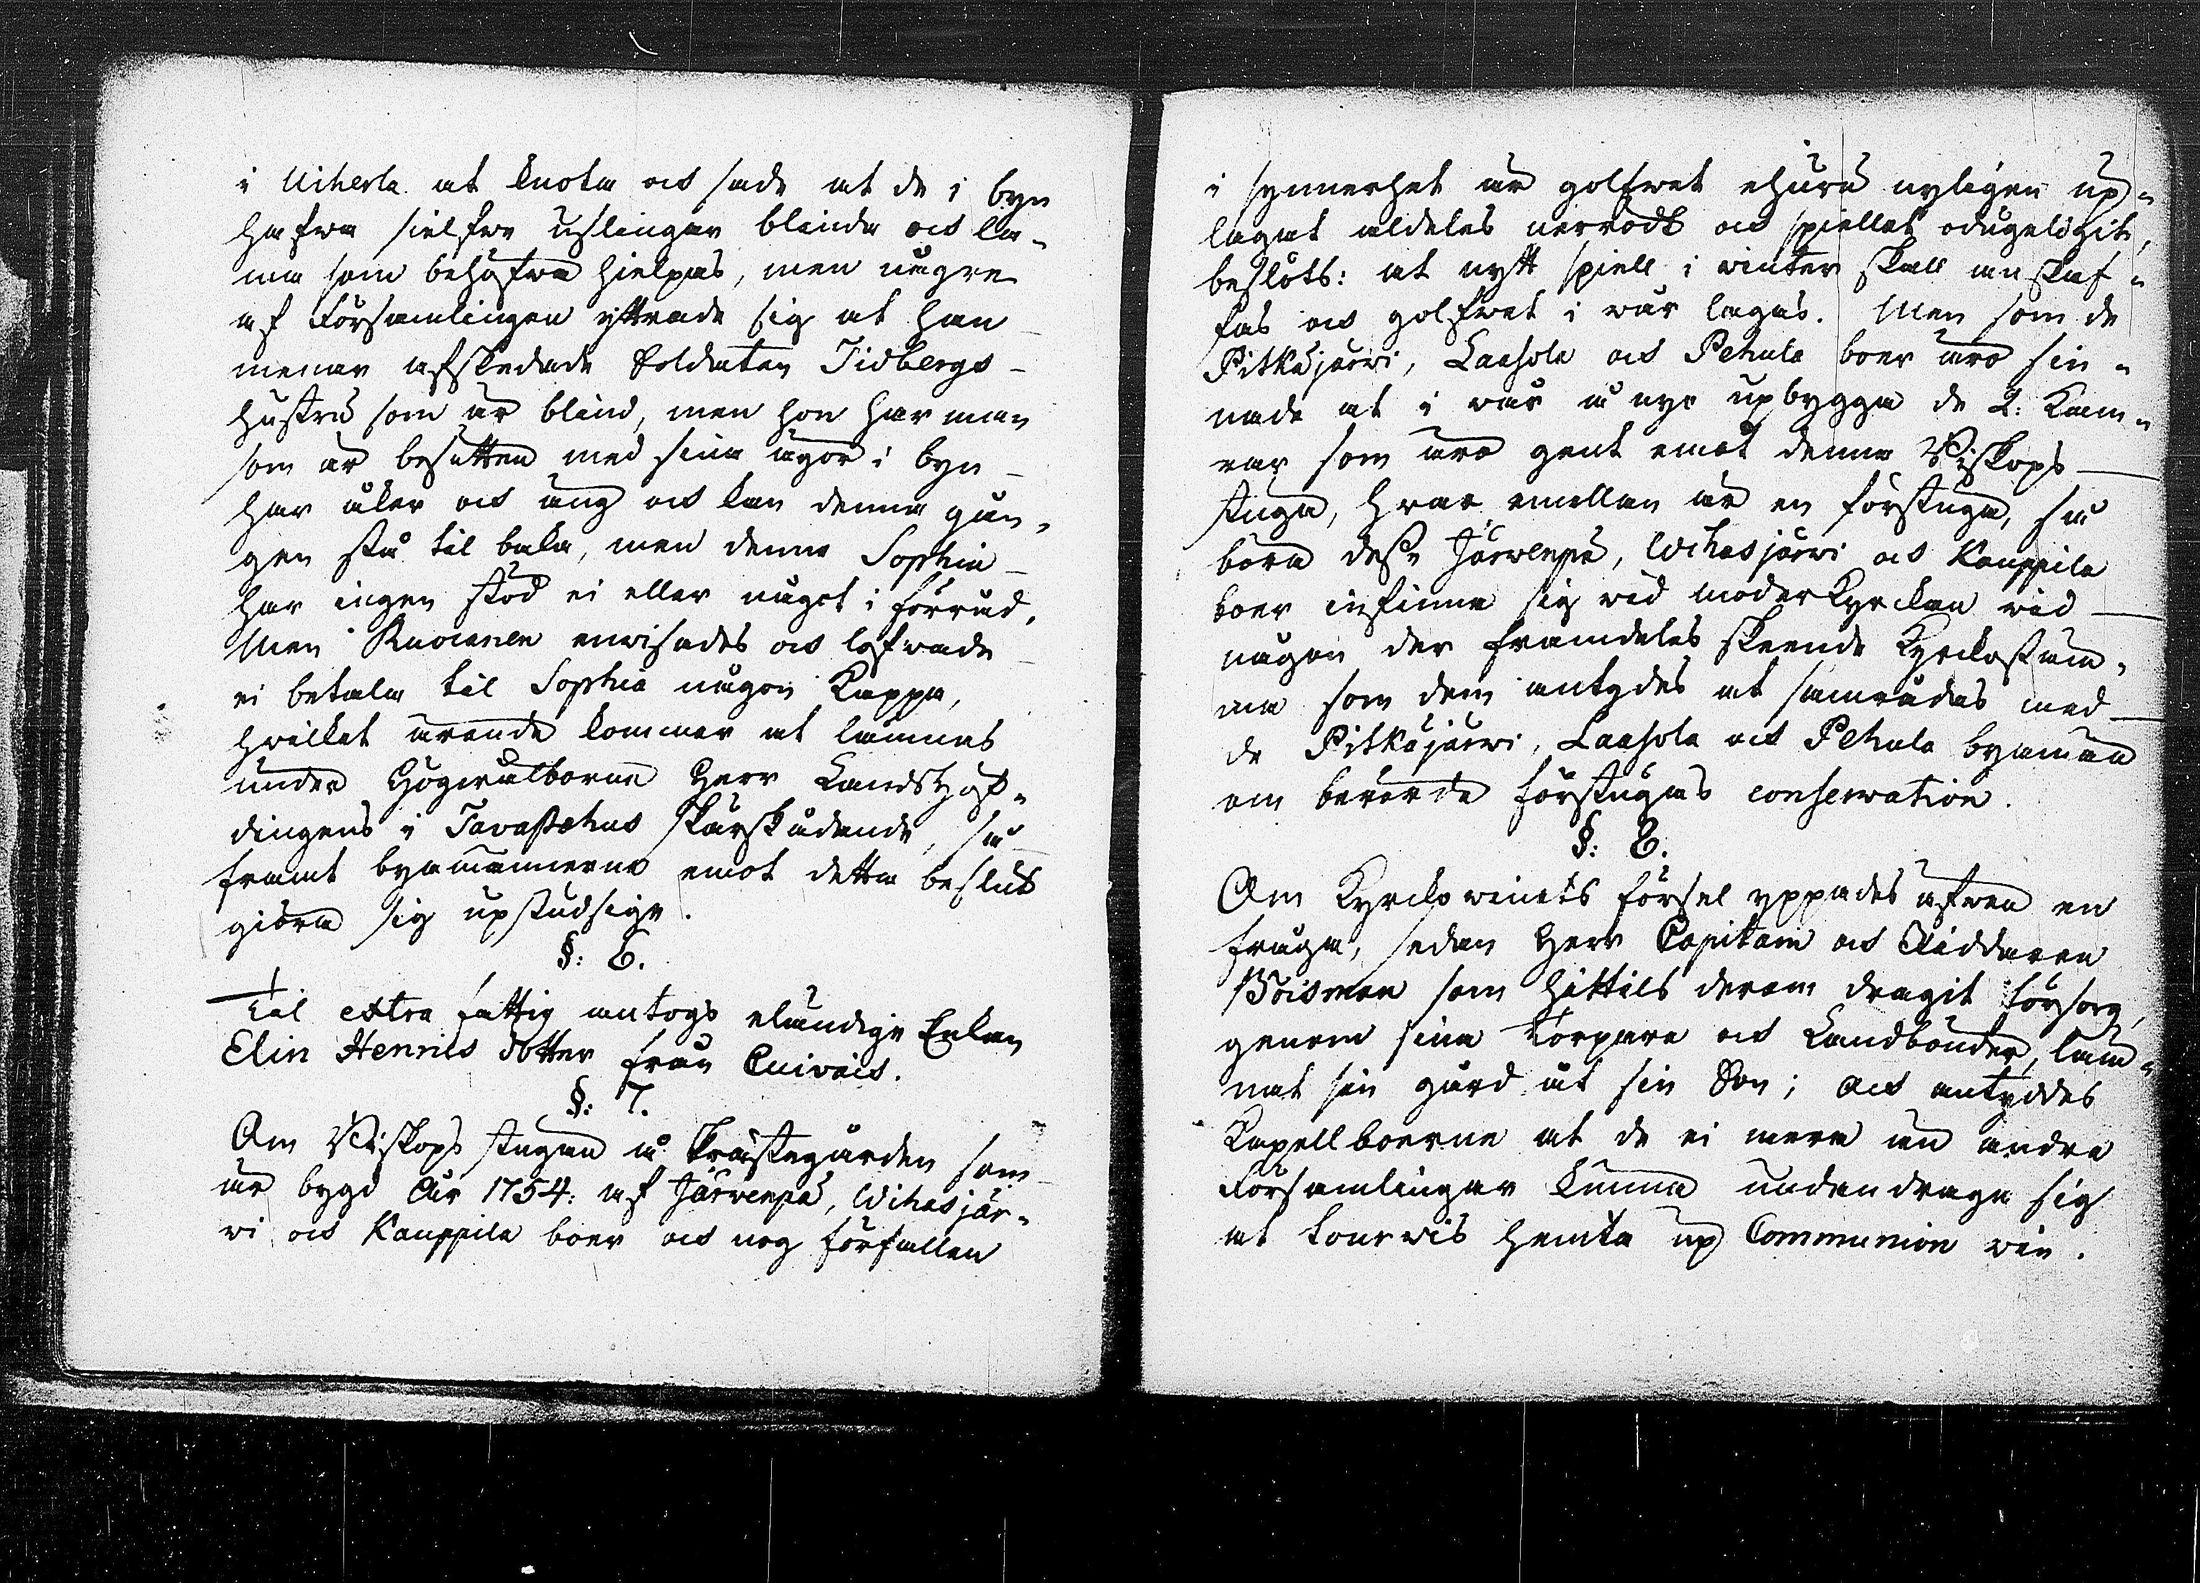 i Uiherla at knota och sade at de i byn
hafwa sielfwe uslingar blinda och la-
ma som behöfwa hielpas, men någre
af Församlingen yttrade sig at han
menar afskedade Soldaten Tidbergs
hustru som är blind, men hon har man
som är besutten med sina ägor i byn
har åker och äng och kan denna gån-
gen stå til baka, men denna Sophia
har ingen stöd ei eller något i förråd,
Men Ruocanen enwisades och lofwade
ei betala til Sophia någon Kappa,
hwilket ärende kommer at lämnas
under Högwälborne Herr Landshöf-
dingens i Tavastehus skärskådande, så
framt byamännerne emot detta beslut
giöra sig upstudsige.
§: 6.
Til extra fattig antogs eländige Enkan
Elin Henrics dotter från Cuivais.
§: 7.
Om Biskops stugan å Prästegården som
är bygd År 1754: af Järvenpä, Wihasjär-
wi och Kauppila boer och nog förfallen
i synnerhet är golfwet ehuru nyligen up-
lagat aldeles nerrödt och spiellet odugeligit,
beslöts: at nytt spiell i winter skall anskaf-
fas och golfwet i wår lagas. Men som de
Pitkäjärwi, Laasola och Pehula boer äro sin-
nade at i wår å nyo upbygga de 2: Kam-
rar som äro gent emot denna Biskops
stuga, hwar emellan är en förstuga, så
böra desse Järwenpä, Wihasjärwi och Kauppila
boer infinna sig wid moderkyrckan wid
någon der framdeles skeende Kyrckostäm-
ma som dem antydes at samrådas med
de Pitkäjärwi, Laasola och Pehula byamän
om berörde förstugas conservation.
§: 8.
Om Kyrckowinets försel yppades äfwen en
fråga, sedan Herr Capitain och Riddaren
Boisman som hittils derom dragit försorg,
genom sina torpare och Landbönder, läm-
nat sin gård åt sin Son; och antyddes
Kapellboerne at de ei mera än andra
Församlingar kunna undandraga sig
at tourwis hemta up Communion vin.